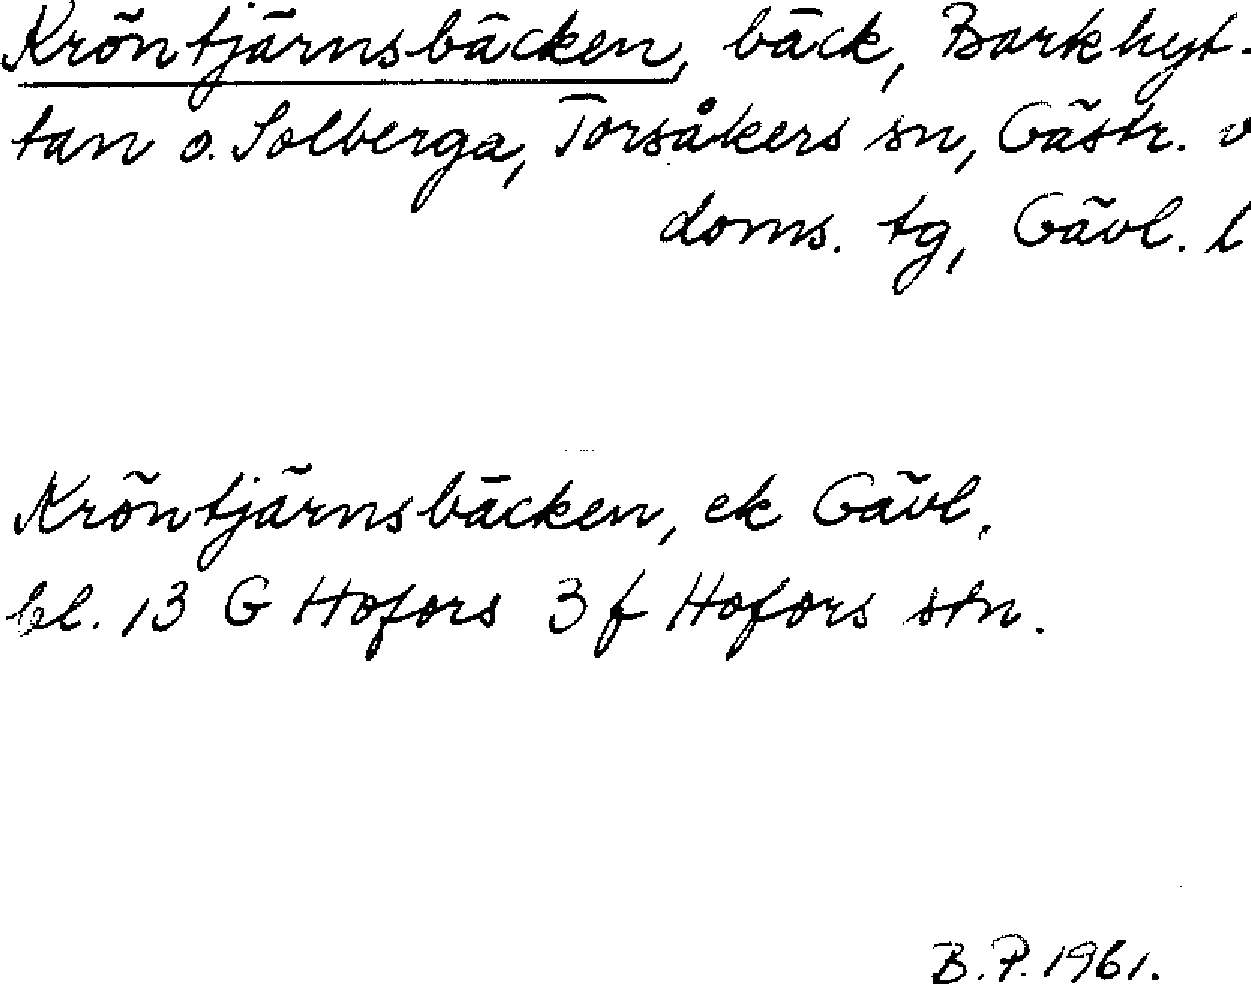 Kröntjärnsbäcken, bäck, Barkhyt-
tan o. Solberga, Torsåkers sn, Gästr. v
doms. tg, Gävl. l
Kröntjärnsbäcken, ek Gävl.
bl. 13 G Hofors 3 f Hofors stn.
B.P. 1961.